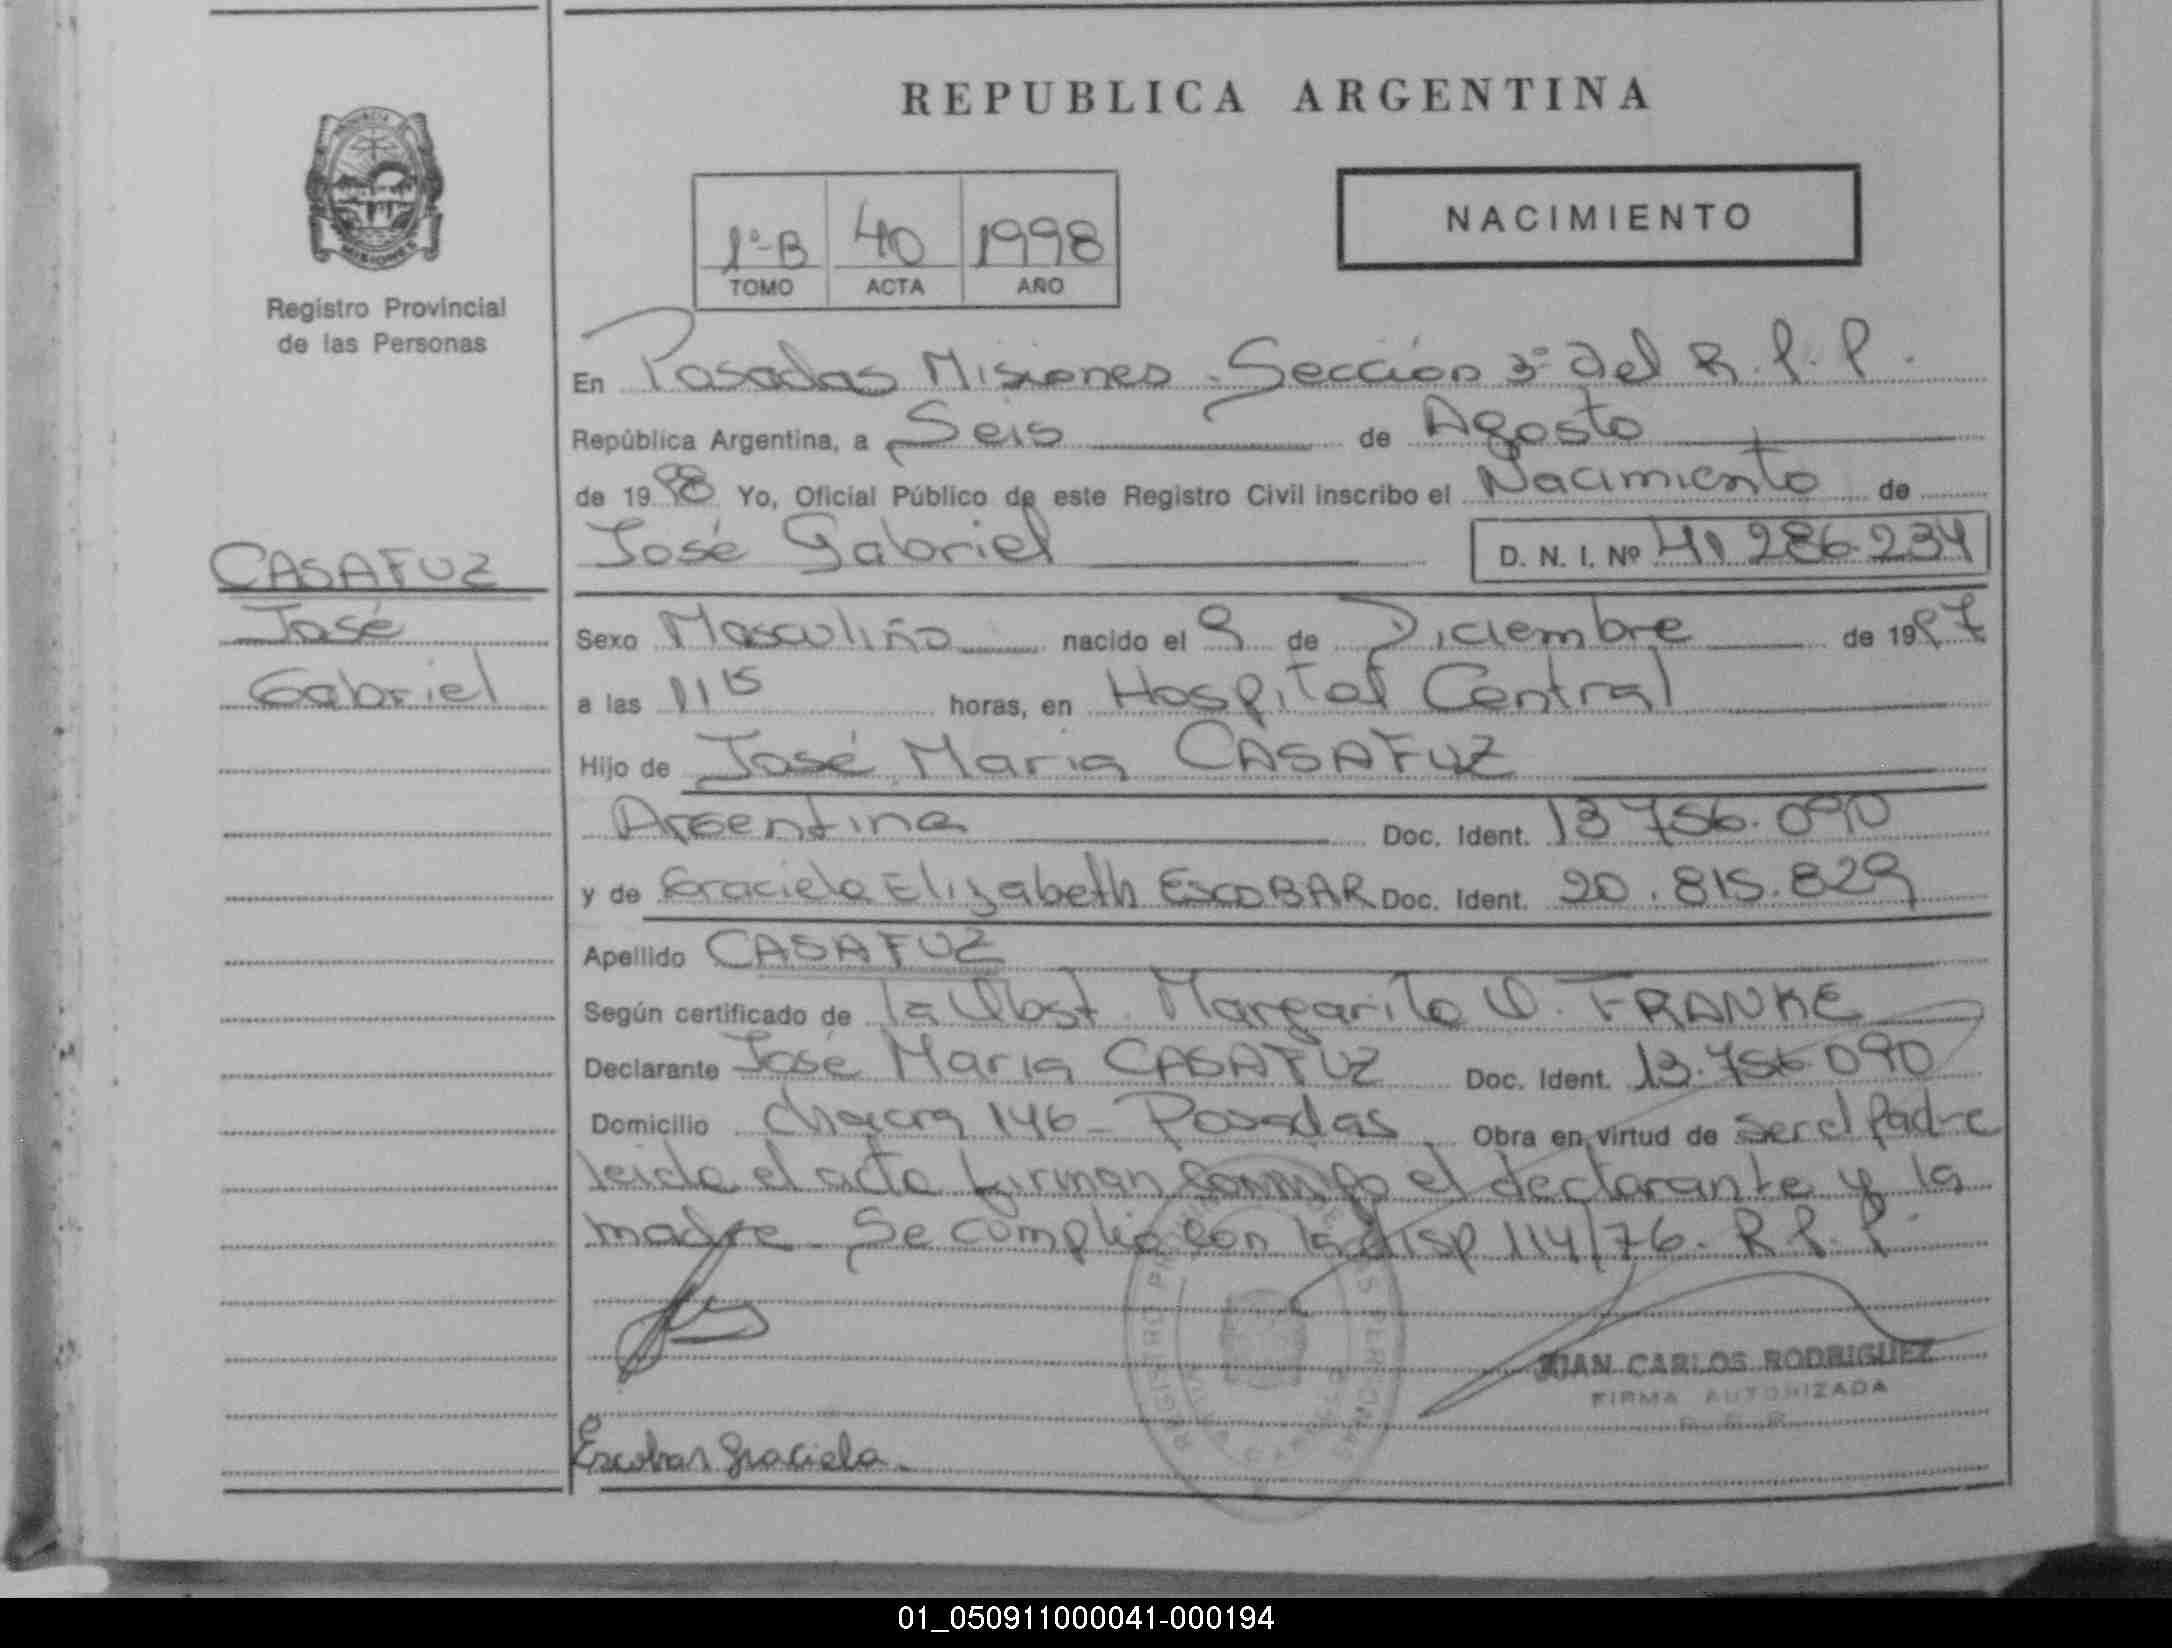 REPUBLICA ARGENTINA
PROVINCIA DE MISIONES
Registro Provincial
de las Personas
1º-B 40 1998
TOMO ACTA AÑO
NACIMIENTO
En Posadas Misiones. Sección 3º del R.P.P.
República Argentina, a Seis de Agosto
de 1998 Yo, Oficial Público de este Registro Civil inscribo el Nacimiento de
José Gabriel D. N. I. Nº 41.286.234
CASAFUZ
José
Gabriel
Sexo Masculino nacido el 9 de Diciembre de 1997
a las 11 15 horas, en Hospital Central
Hijo de José Maria CASAFUZ
Argentina Doc. Ident. 13.756.090
y de Graciela Elizabeth ESCOBAR Doc. Ident. 20.815.829
Apellido CASAFUZ
Según certificado de la Obst. Margarita O. FRANKE
Declarante José Maria CASAFUZ Doc. Ident. 13.756.090
Domicilio Chacra 146 - Posadas Obra en virtud de ser el padre
leida el acta firman conmigo el declarante y la
madre. Se cumplio con la disp 114/76. R.P.P.
REGISTRO PROVINCIAL DE LAS PERSONAS
JUAN CARLOS RODRIGUEZ
FIRMA AUTORIZADA
Escobar Graciela.
01_050911000041-000194